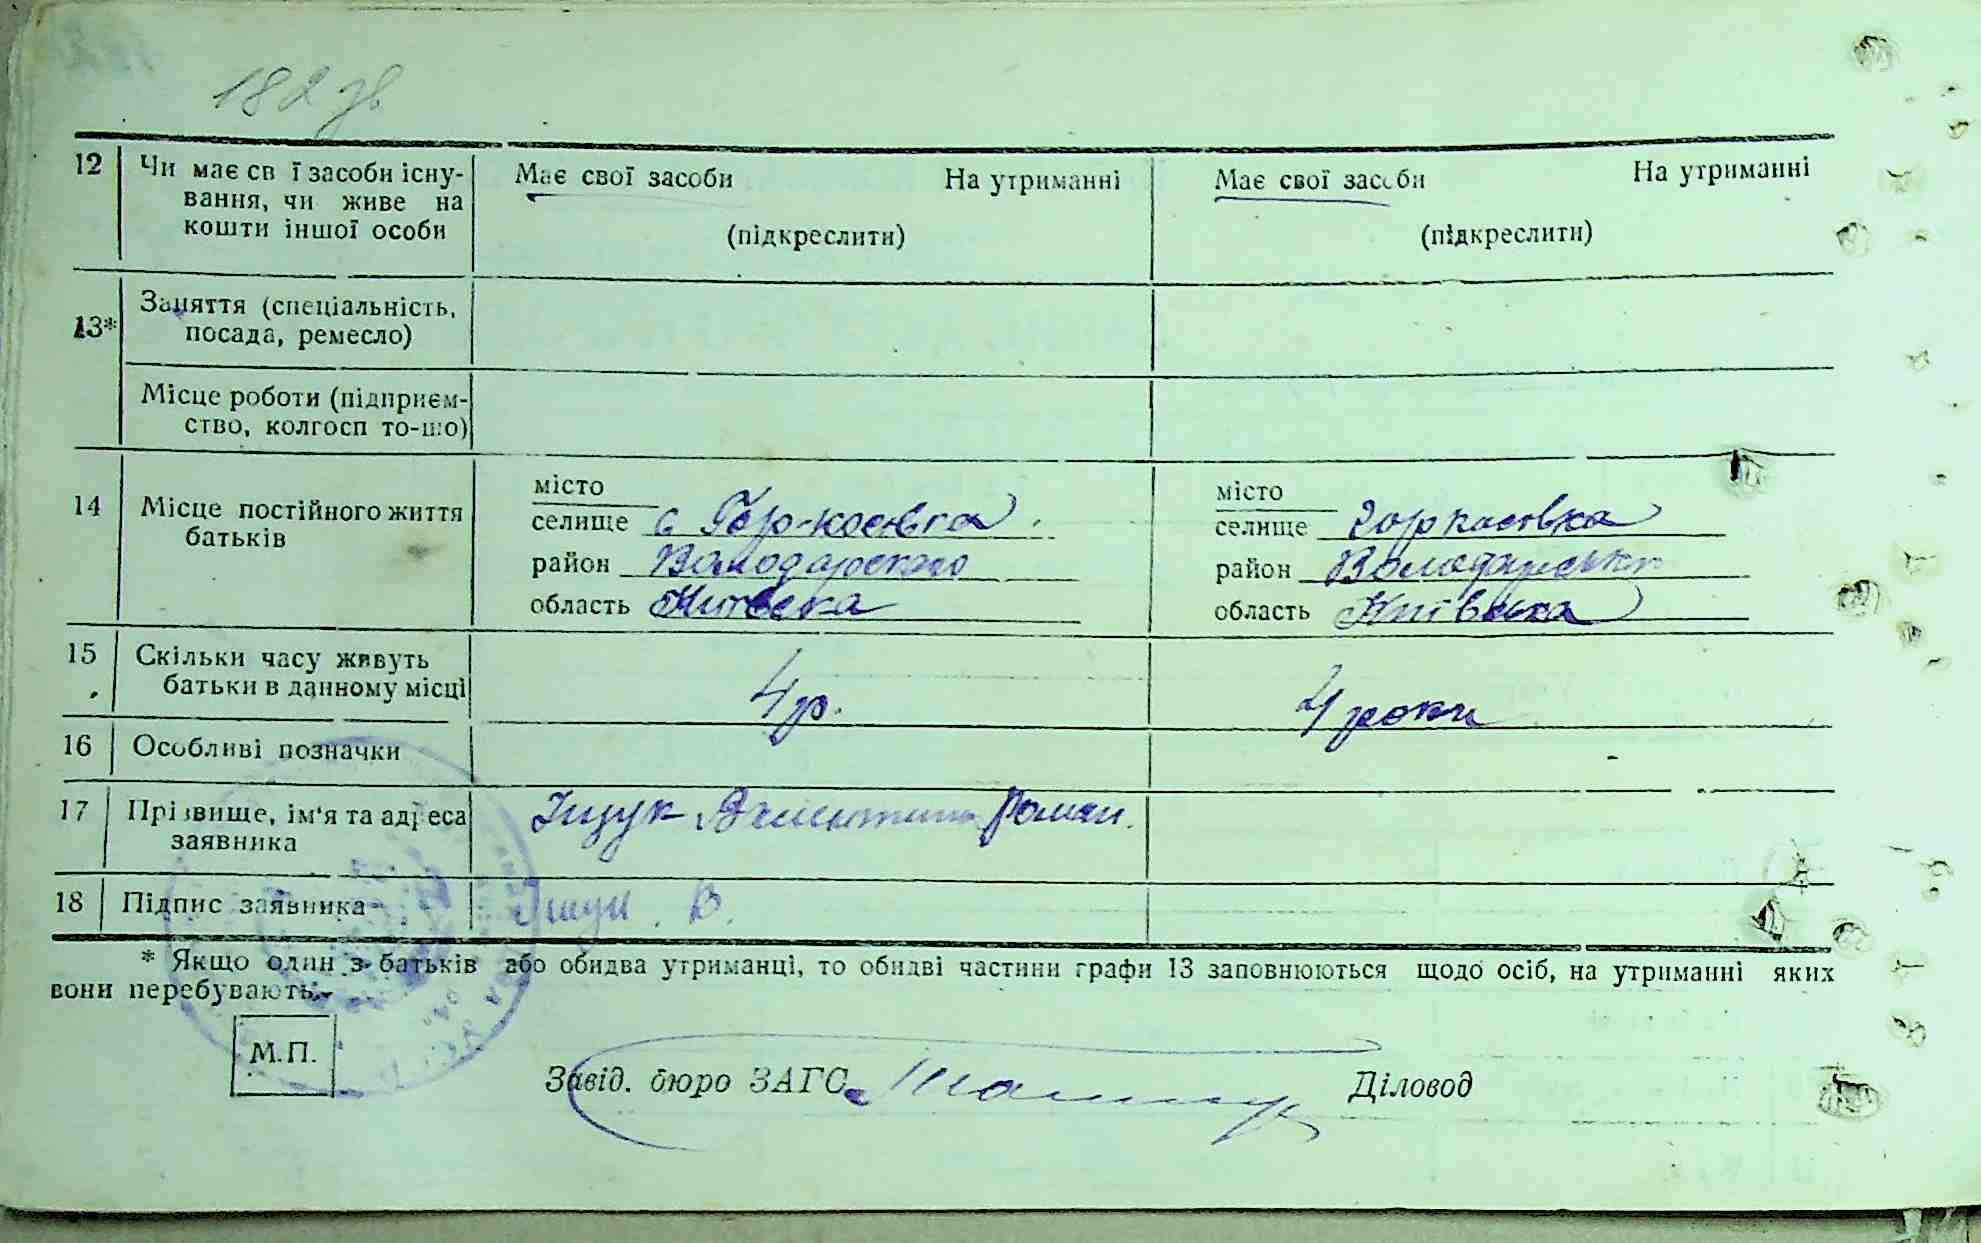 182 зв.
12 Чи має св ї засоби існу- Має свої засоби На утриманні Має свої засоби На утриманні
вання, чи живе на
кошти іншої особи (підкреслити) (підкреслити)
13* Заняття (спеціальність,
посада, ремесло)
Місце роботи (підприєм-
ство, колгосп то-що)
14 Місце постійного життя
батьків
місто місто
селище с Гор-косівка селище Горкосівка
район Володарского район Володарськ
область Київска область Київська
15 Скільки часу живуть
батьки в данному місці 4 р. 4 роки
16 Особливі позначки
17 Прізвище, ім'я та адреса Іщук Валентина Роман.
заявника
18 Підпис заявника Іщук В.
* Якщо один з батьків або обидва утриманці, то обидві частини графи 13 заповнюються щодо осіб, на утриманні яких
вони перебувають.
М.П.
Завід. бюро ЗАГС Діловод